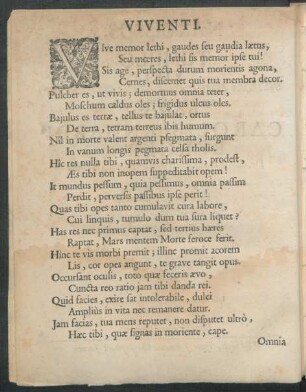 VIVENTI.
Vive memor lethi, gaudes seu gaudia lætus,
Seu mœres, lethi sis memor ipse tui!
Sis age, perspecta durum morientis agona,
Cernes, discernet quis tua membra decor.
Pulcher es, ut vivis; demortuus omnia teter,
Moschum caldus oles; frigidus ulcus oles.
Bajulus es terræ, tellus te bajulat, ortus
De terra, tetram terreus ibis humum.
Nil in morte valent argenti psegmata, surgunt
In vanum longis pegmata celsa tholis.
Hic res nulla tibi, quamvis charissima, prodest,
Æs tibi non inopem suppeditabit opem!
It mundus pessum, quia pessimus, omnia passim
Perdit, perversis passibus ipse perit!
Quas tibi opes tanto cumulavit cura labore,
Cui linquis, tumulo dum tua sura liquet?
Has res nec primus captat, sed tertius hæres
Raptat, Mars mentem Morte feroce ferit.
Hinc te vis morbi premit; illinc promit acorem
Lis, cor opes angunt, te grave tangit opus.
Occursant oculis, toto quæ feceris ævo,
Cuncta reo ratio jam tibi danda rei.
Quid facies, exire sat intolerabile, dulci
Ampliùs in vita nec remanere datur.
Jam facias, tua mens reputet, non disputet ultrò,
Hæc tibi, quæ signas in moriente, cape.
Omnia